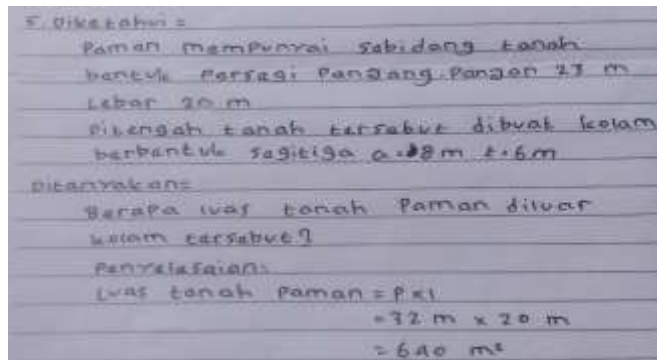 5. Diketahui =
Paman mempunyai sebidang tanah
bentuk Persegi Panjang. Panjan 23 m
Lebar 20 m
Ditengah tanah tersebut dibuat kolam
berbentuk segitiga a = 8 m t = 6 m
Ditanyakan =
Berapa luas tanah Paman diluar
kolam tersebut?
Penyelesaian:
Luas tanah Paman = P x l
= 32 m x 20 m
= 640 m²